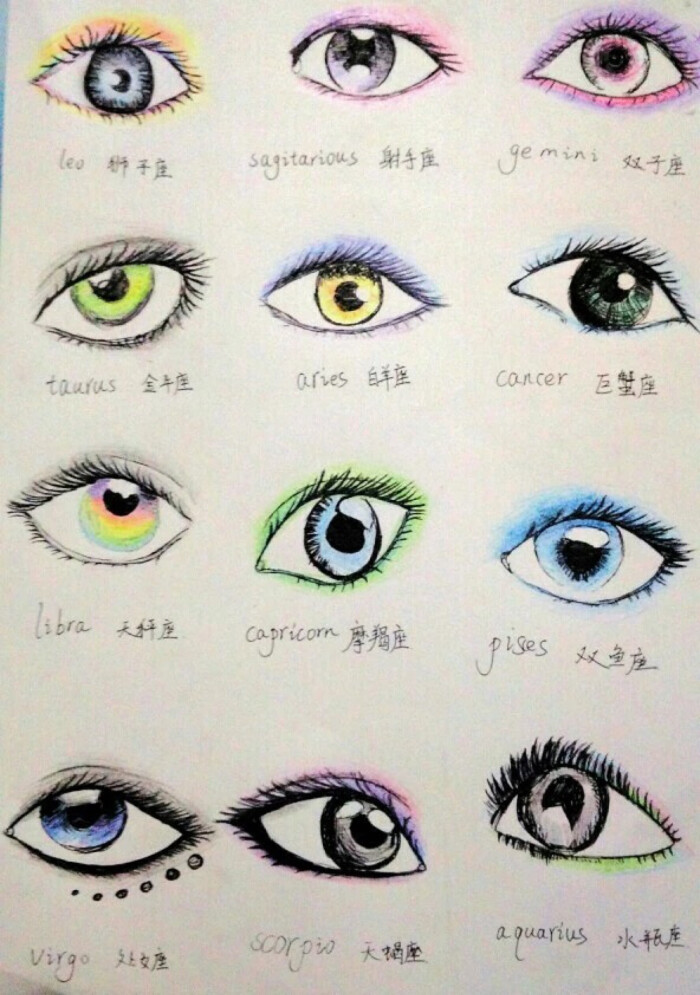 leo 狮子座
sagitarious 射手座
gemini 双子座
taurus 金牛座
aries 白羊座
cancer 巨蟹座
libra 天秤座
capricorn 摩羯座
pises 双鱼座
virgo 处女座
scorpio 天蝎座
aquarius 水瓶座